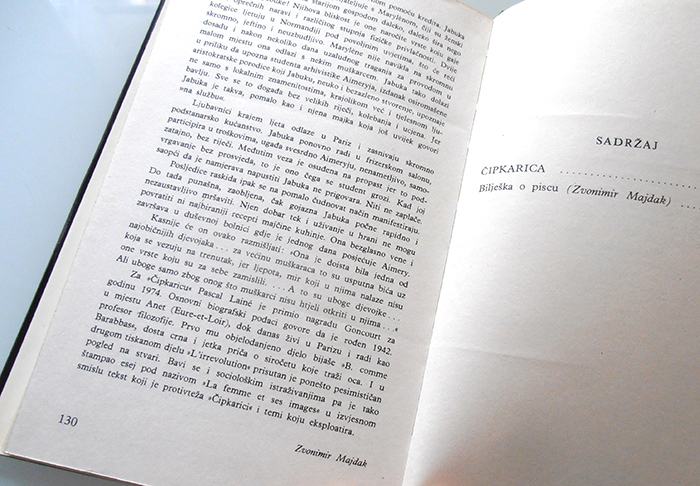 prijateljuje s Marylènom, čiji su ženski
Jabuke! Njihova bliskost je one naročite vrste koju daje
oprečnih naravi i različitog stupnja fizičke privlačnosti. Dvije
kolegice ljetuju u Normandiji pod povoljnim uvjetima, što će reći
skromno, jeftino i neuzbudljivo. Marylène nije navikla na skromnu
dosadu i nakon nekoliko dana uzaludnog traganja za provodom u
malom mjestu ona odlazi s nekim muškarcem. Jabuka tako dolazi
u priliku da upozna studenta arhivistike Aimeryja, izdanak osiromašene
aristokratske porodice koji Jabuku, neuko i bezazleno stvorenje, upoznaje
ne samo s lokalnim znamenitostima, krajolikom već i tjelesnom lju-
bavlju. Sve se to događa bez velikih riječi, kolebanja i ucjena. Jer
Jabuka je takva, pomalo kao i njena majka koja još uvijek govori
»na službu«.
Ljubavnici krajem ljeta odlaze u Pariz i zasnivaju skromno
podstanarsko kućanstvo. Jabuka ponovno radi u frizerskom salonu,
participira u troškovima, ugađa svesrdno Aimeryju, nenametljivo, samo-
zatajno, bez riječi. Međutim veza je osuđena na propast jer to pod-
vrgavanje bez prosvjeda, to je ono čega se student grozi. Kad joj
saopći da je namjerava napustiti Jabuka ne prigovara. Niti ne zaplače.
Posljedice raskida ipak se na pomalo čudnovat način manifestiraju.
Do tada punašna, zaobljena, čak gojazna Jabuka počne rapidno i
nezaustavljivo mršaviti. Njen dobar tek i uživanje u hrani ne mogu
povratiti ni najbiraniji recepti majčine kuhinje. Ona bezglasno vene i
završava u duševnoj bolnici gdje je jednog dana posjećuje Aimery.
Kasnije će on ovako razmišljati: »Ona je doista bila jedna od
najobičnijih djevojaka . . . za većinu muškaraca to su usputna bića uz
koja se vezuju na trenutak, jer ljepota, mir koji u njima nalaze nisu
one vrste koju su za sebe zamislili. . . . A to su uboge djevojke . . .
Ali uboge samo zbog onog što muškarci nisu htjeli otkriti u njima . . .«
Za »Čipkaricu« Pascal Lainé je primio nagradu Goncourt za
godinu 1974. Osnovni biografski podaci govore da je rođen 1942.
u mjestu Anet (Eure-et-Loir), dok danas živi u Parizu i radi kao
profesor filozofije. Prvo mu objelodanjeno djelo bijaše »B. comme
Barabbas«, dosta crna i jetka priča o siročetu koje traži oca. I u
drugom tiskanom djelu »L'irrevolution« prisutan je ponešto pesimističan
pogled na stvari. Bavi se i sociološkim istraživanjima pa je tako
štampao esej pod nazivom »La femme et ses images« u izvjesnom
smislu tekst koji je protivteža »Čipkarici« i temi koju eksploatira.
Zvonimir Majdak
130
SADRŽAJ
ČIPKARICA . . . . . . . . . . . . . .
Bilješka o piscu (Zvonimir Majdak) . . .